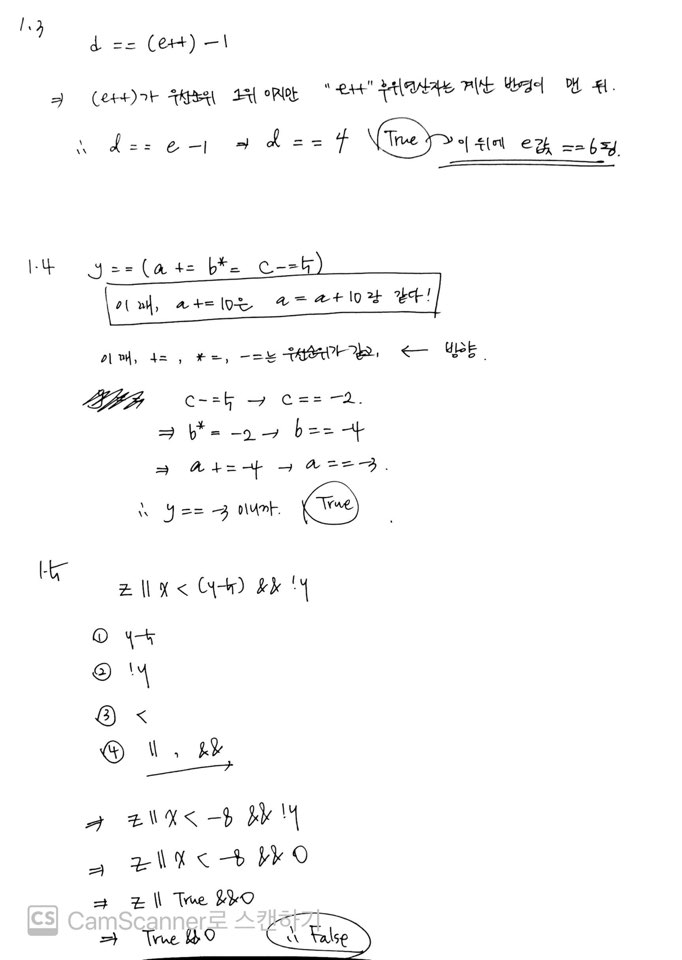 1.3
d == (e++) -1
⇒ (e++)가 우선순위 1위 이지만 "e++" 후위연산자는 계산 반영이 맨 뒤.
∴ d == e -1 ⇒ d == 4 True → 이 뒤에 e값 == 6 됨.
1.4 y == (a += b *= c -= 5)
이 때, a += 10은 a = a + 10 랑 같다!
이 때, +=, *=, -=는 우선순위가 같고, ← 방향.
c -= 5 → c == -2.
⇒ b *= -2 → b == -4
⇒ a += -4 → a == -3.
∴ y == -3 이니까. True
1.5
z || x < (y-5) && !y
① y-5
② !y
③ <
④ ||, &&
⇒ z || x < -8 && !y
⇒ z || x < -8 && 0
⇒ z || True && 0
CS CamScanner로 스캔하기
⇒ True && 0 ∴ False